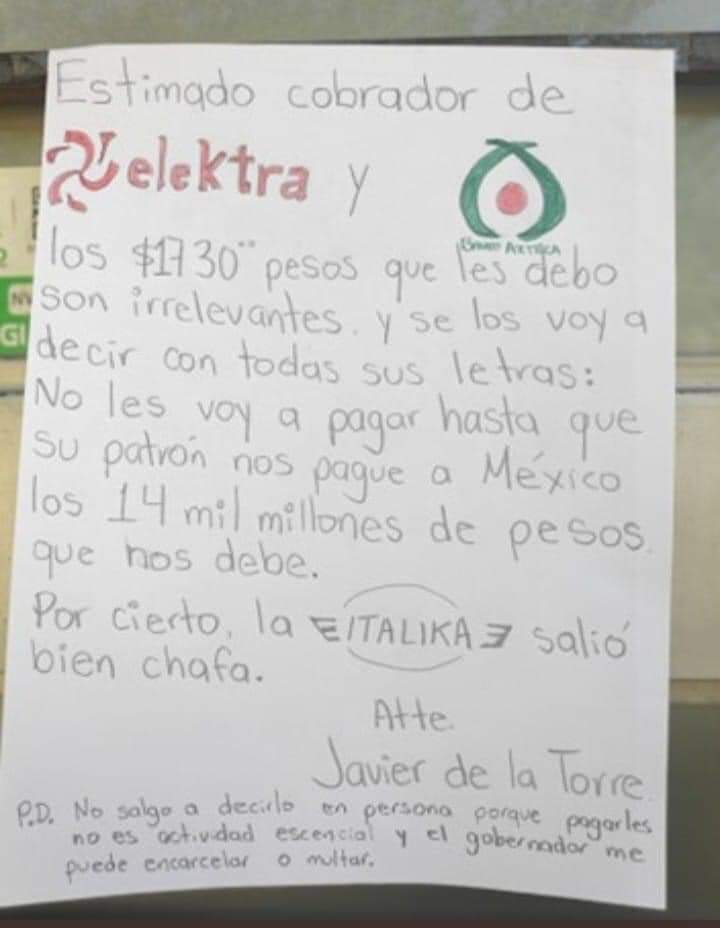 Estimado cobrador de
elektra y
BANCO AZTECA
los $1730°° pesos que les debo
son irrelevantes. y se los voy a
decir con todas sus letras:
No les voy a pagar hasta que
su patrón nos pague a México
los 14 mil millones de pesos.
que nos debe.
Por cierto, la ITALIKA salió
bien chafa.
Atte.
Javier de la Torre.
P.D. No salgo a decirlo en persona porque pagarles
no es actividad escencial y el gobernador me
puede encarcelar o multar.